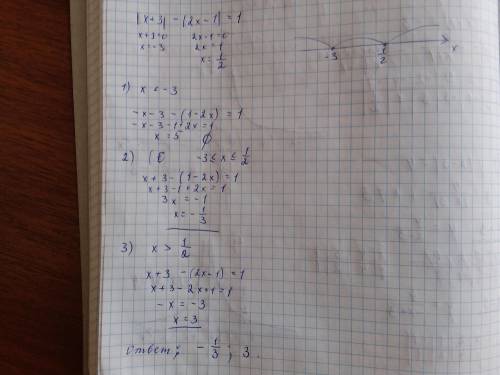 |x+3| - |2x-1| = 1
x+3=0 2x-1=0
x=-3 2x=1
x=1/2
-3 1/2 x
1) x < -3
-x-3-(1-2x)=1
-x-3-1+2x=1
x=5 ∅
2) -3≤x≤1/2
x+3-(1-2x)=1
x+3-1+2x=1
3x=-1
x=-1/3
3) x > 1/2
x+3-(2x-1)=1
x+3-2x+1=1
-x=-3
x=3
Ответ: -1/3; 3.